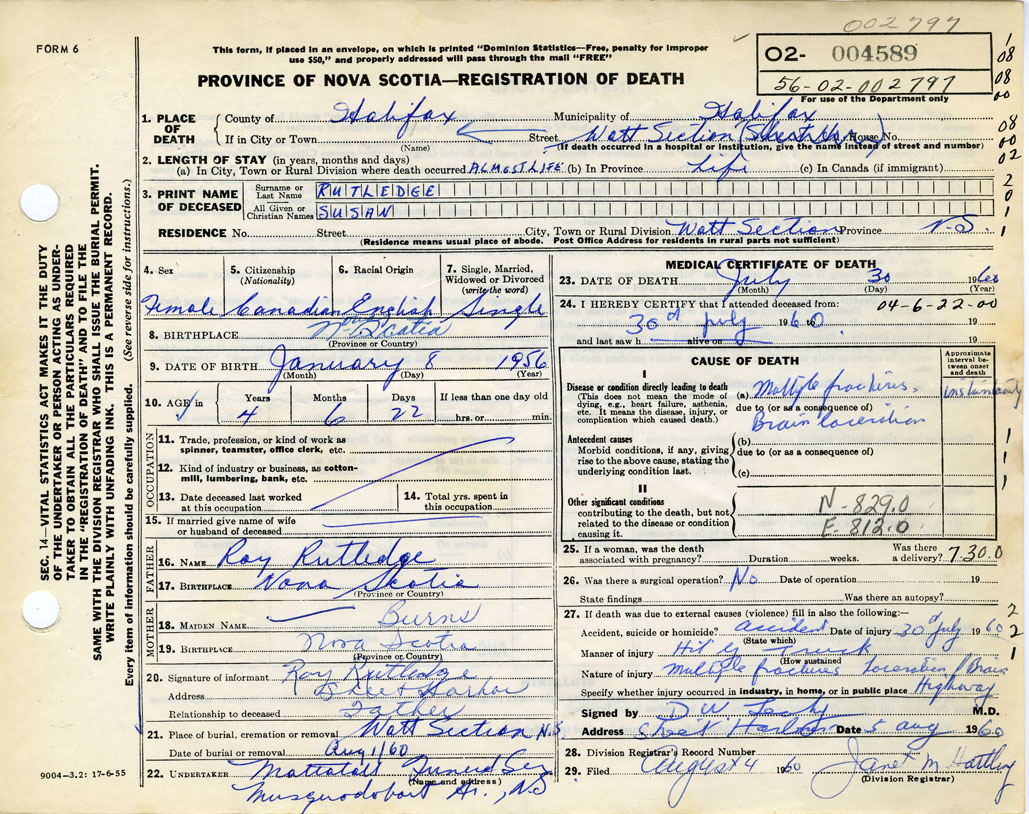 002797
FORM 6
This form, if placed in an envelope, on which is printed "Dominion Statistics—Free, penalty for improper
use $50," and properly addressed will pass through the mail "FREE"
PROVINCE OF NOVA SCOTIA—REGISTRATION OF DEATH
02- 004589
56-02-002797
For use of the Department only
1 08 08 00
08 00 02
2 0 1 1
SEC. 14—VITAL STATISTICS ACT MAKES IT THE DUTY
OF THE UNDERTAKER OR PERSON ACTING AS UNDER-
TAKER TO OBTAIN ALL THE PARTICULARS REQUIRED
IN THE "REGISTRATION OF DEATH" AND TO FILE THE
SAME WITH THE DIVISION REGISTRAR WHO SHALL ISSUE THE BURIAL PERMIT.
WRITE PLAINLY WITH UNFADING INK. THIS IS A PERMANENT RECORD.
Every item of information should be carefully supplied. (See reverse side for instructions.)
1. PLACE OF DEATH County of Halifax Municipality of Halifax
If in City or Town (Name) Street Watt Section (Sheet Har) House No.
(If death occurred in a hospital or institution, give the name instead of street and number)
2. LENGTH OF STAY (in years, months and days)
(a) In City, Town or Rural Division where death occurred ALMOST LIFE (b) In Province Life (c) In Canada (if immigrant)
3. PRINT NAME OF DECEASED Surname or Last Name RUTLEDGE
All Given or Christian Names SUSAN
RESIDENCE No. Street City, Town or Rural Division Watt Section Province N.S.
(Residence means usual place of abode. Post Office Address for residents in rural parts not sufficient)
4. Sex 5. Citizenship (Nationality) 6. Racial Origin 7. Single, Married, Widowed or Divorced (write the word)
Female Canadian English Single
8. BIRTHPLACE Nova Scotia
(Province or Country)
9. DATE OF BIRTH January 8 1956
(Month) (Day) (Year)
10. AGE in Years Months Days If less than one day old
4 6 22 hrs. or min.
OCCUPATION
11. Trade, profession, or kind of work as
spinner, teamster, office clerk, etc.
12. Kind of industry or business, as cotton-
mill, lumbering, bank, etc.
13. Date deceased last worked
at this occupation
14. Total yrs. spent in
this occupation
15. If married give name of wife
or husband of deceased
FATHER
16. NAME Roy Rutledge
17. BIRTHPLACE Nova Scotia
(Province or Country)
MOTHER
18. MAIDEN NAME Burns
19. BIRTHPLACE Nova Scotia
(Province or Country)
20. Signature of informant Roy Rutledge
Address Sheet Harbor
Relationship to deceased Father
21. Place of burial, cremation or removal Watt Section N.S
Date of burial or removal Aug 1/60
22. UNDERTAKER Mattatall Funeral Ser
(Name and address)
Musquodoboit Hr., N.S
9004-3.2: 17-6-55
MEDICAL CERTIFICATE OF DEATH
23. DATE OF DEATH July 30 1960
(Month) (Day) (Year)
24. I HEREBY CERTIFY that I attended deceased from: 04-6-22-00
30th July 1960 19
and last saw h alive on 19
CAUSE OF DEATH
Approximate interval between onset and death
I
Disease or condition directly leading to death
(This does not mean the mode of
dying, e.g., heart failure, asthenia,
etc. It means the disease, injury, or
complication which caused death.)
(a) Multiple fractures.
due to (or as a consequence of)
Brain laceration
Antecedent causes
Morbid conditions, if any, giving
rise to the above cause, stating the
underlying condition last.
(b)
due to (or as a consequence of)
(c)
1 1 1
II
Other significant conditions
contributing to the death, but not
related to the disease or condition
causing it.
N-829.0
E-812.0
25. If a woman, was the death
associated with pregnancy? Duration weeks. Was there a delivery? 730.0
26. Was there a surgical operation? No Date of operation 19
State findings Was there an autopsy?
27. If death was due to external causes (violence) fill in also the following:—
Accident, suicide or homicide? accident Date of injury 30th July 1960
(State which)
Manner of injury Hit by Truck
(How sustained)
Nature of injury Multiple fractures Laceration / Brain
2 2 1
Specify whether injury occurred in industry, in home, or in public place Highway
Signed by D W M.D.
Address Sheet Harbor Date 5 aug 1960
28. Division Registrar's Record Number
29. Filed August 4 1960 Janet M Hartling
(Division Registrar)